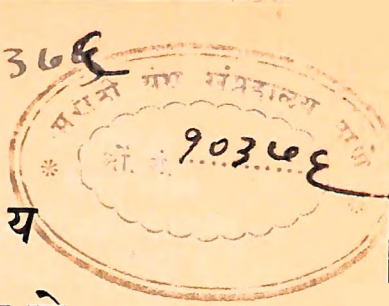 ३७६
मराठी ग्रंथ संग्रहालय ठाणे
१०३७६
य